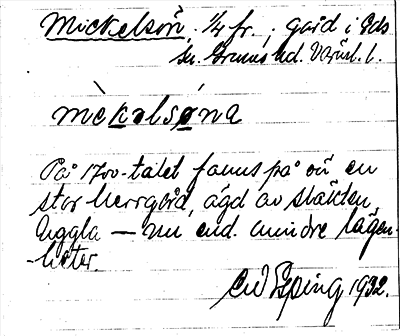 Mickelsön, 1/4 fr.; gård i Eds
sn. Grums hd. Värml. l.
mèkalsøna
På 1700-talet fanns på ön en
stor herrgård, ägd av släkten
Uggla — nu end. mindre lägen-
heter.
1932.